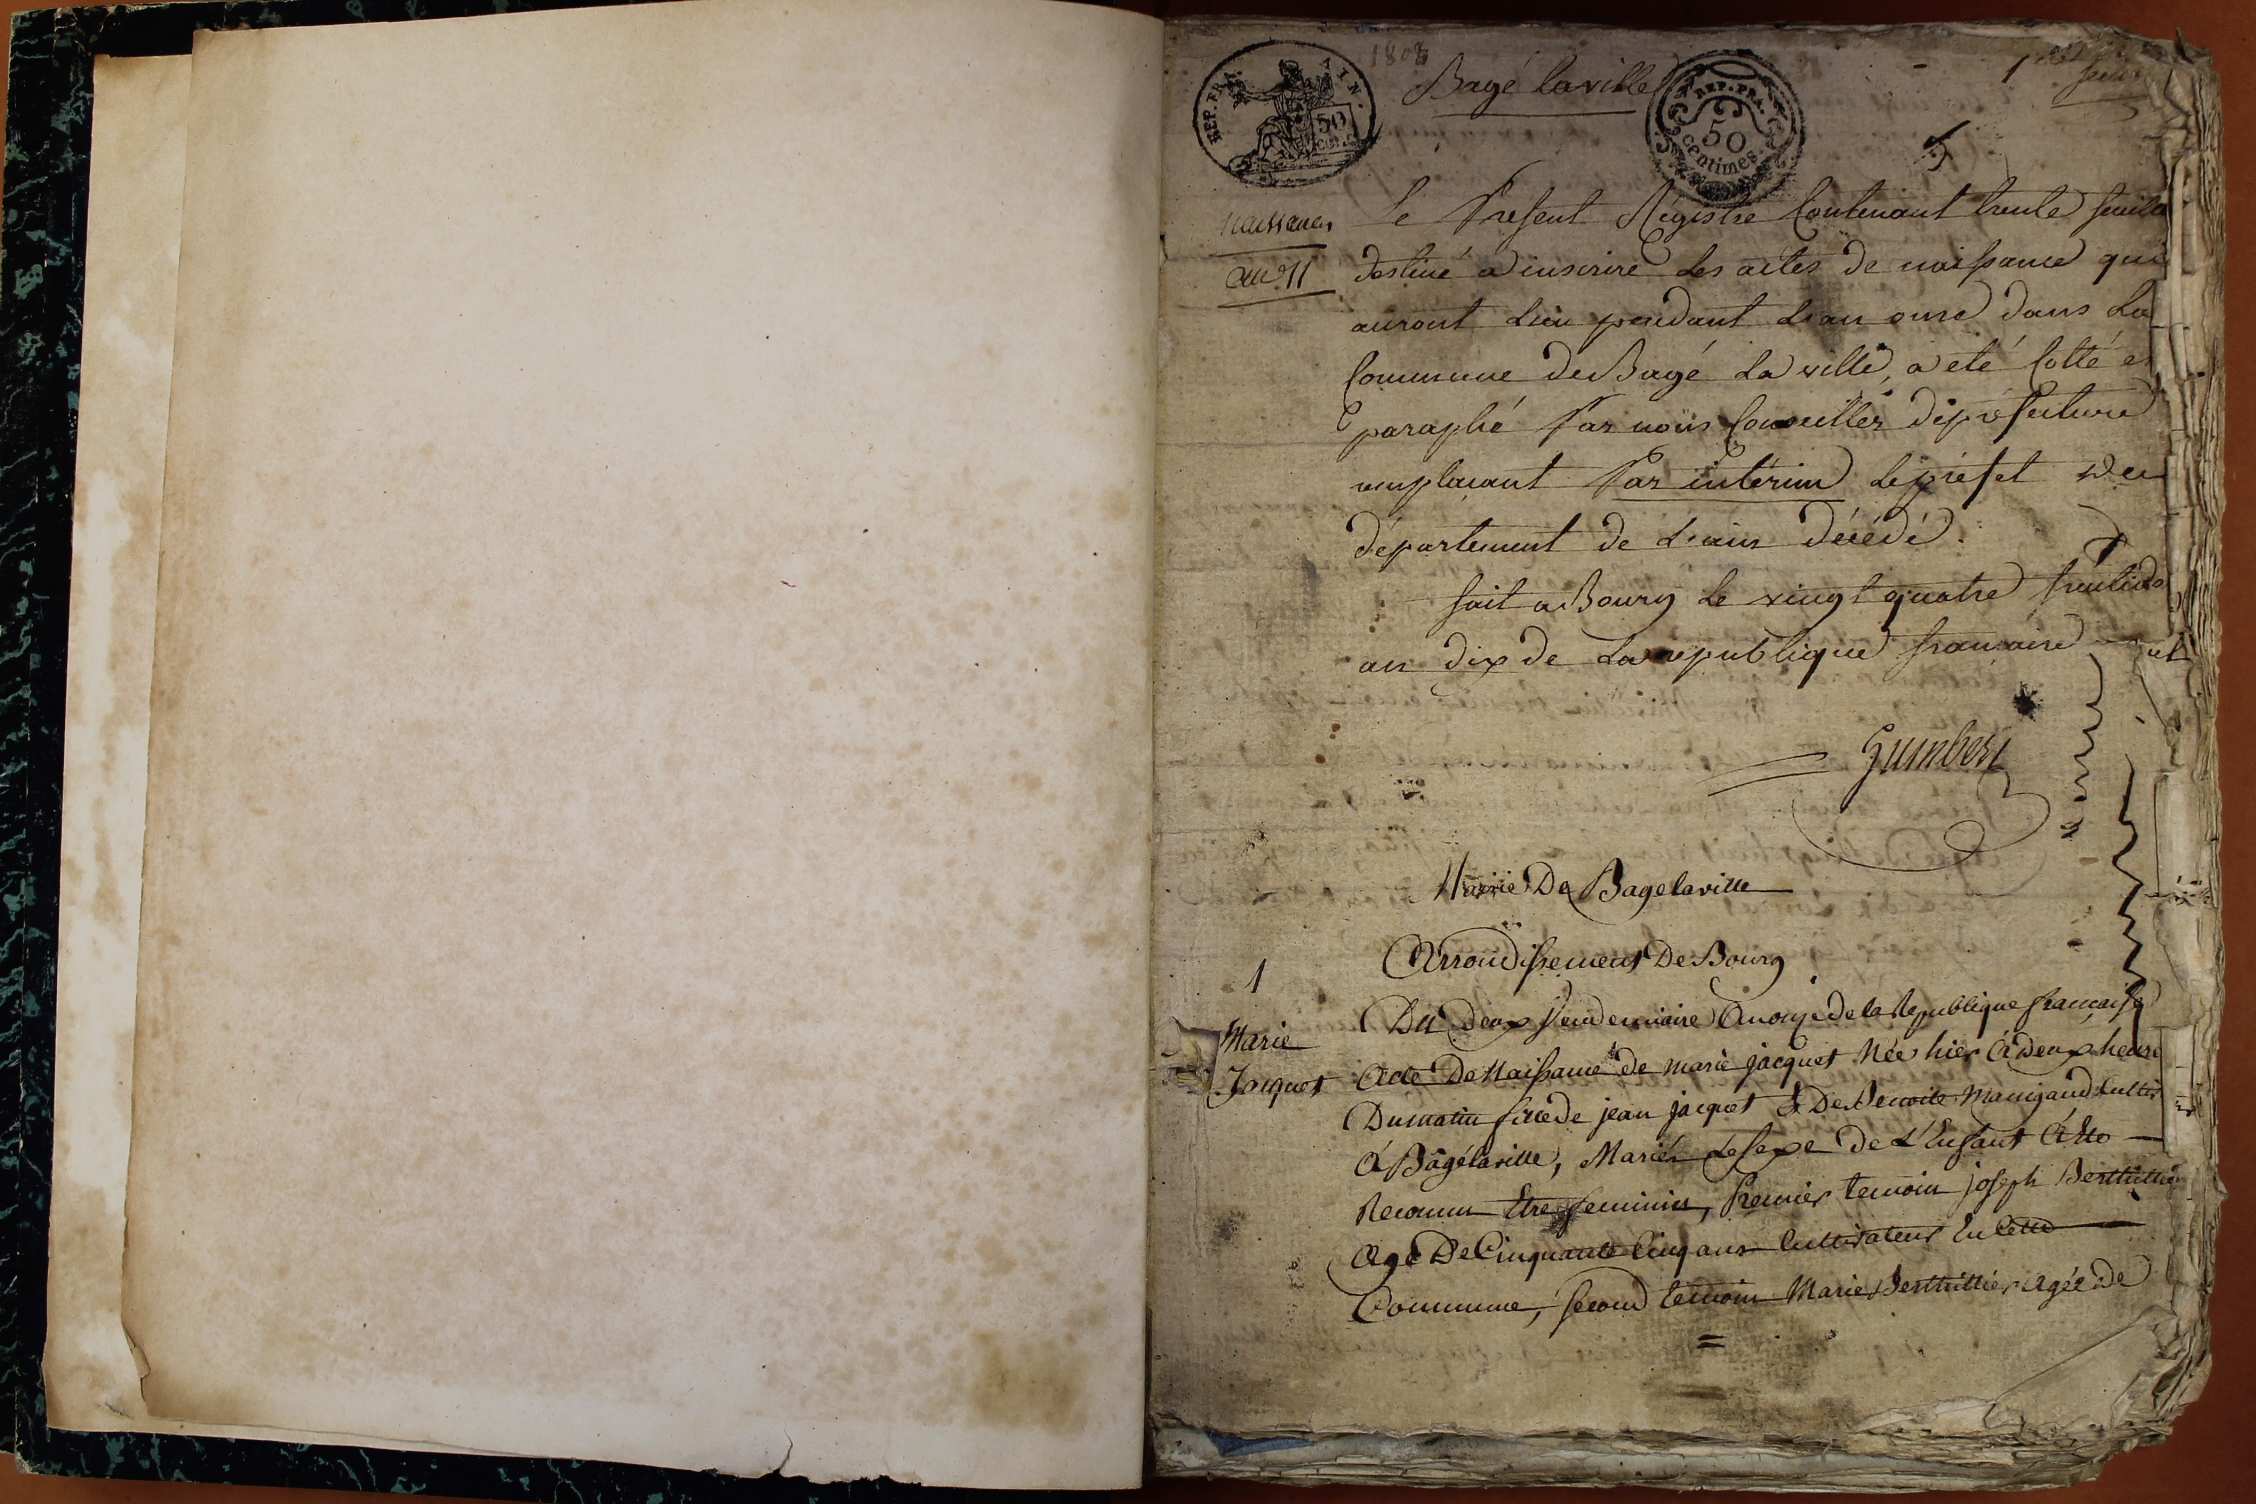 1808
Bagé laville
1er
REP. FRA. AIN.
50
REP. FRA.
50
centimes
Naissances
an 11
Le Present Régistre Contenant trente feuill
destiné a inscrire les actes de naissance qui
auront Lieu pendant L'an onze dans La
Commune de Bagé La ville, a eté Cotté et
paraphé Par nous Conseiller de préfecture
remplacant Par intérim Le préfet du
département de L'ain décédé.
fait a Bourg le vingt quatre fructido
an dix de La republique francaise
Mairie De Bagelaville
Arrondissement De Bourg
1
Marie
Jacquet
Du deux Vendemiaire an onze de la Republique française
Acte De Naissance de marie jacquet Née hier à deux heure
Du matin fille de jean jacquet & De Benoite Manigand Cultiv
à Bagélaville, Mariés Le sexe de L'Enfant à été
Reconnu Etre feminin, Premier temoin joseph Berthillier
Agé De Cinquante Cinq ans Cultivateur En Cette
Commune, second temoin Marie Berthillier agée de
=